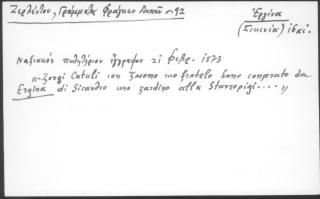 Ζερλέντου, Γράμματα Φράγκων Δουκῶν σ. 92
Ἐργίνα
(Σικενία) ἰδαί.
Ναξιακὸν πωλητήριον ἔγγραφον 21 φεβρ. 1573
"Zorzi Catuli con Zacomo suo fratelo hano comprato da
Ergina di Sicandro uno zardino alla Stavropigi....."